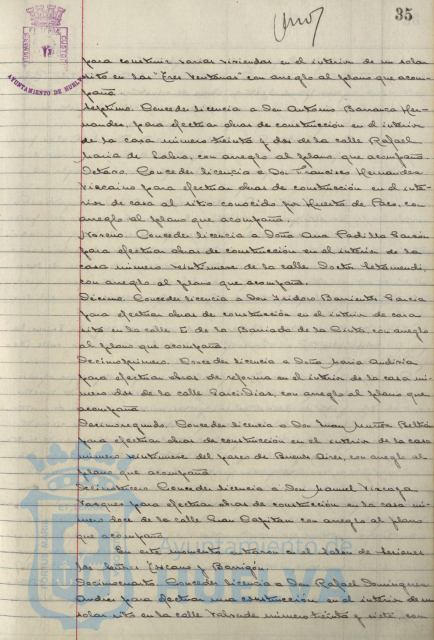 35
AYUNTAMIENTO DE HUELVA
para construir varias viviendas en el interior de un solar
sito en las "Tres Ventanas" con arreglo al plano que acom-
paña.
Séptimo. Conceder licencia a Don Antonio Barranca Her-
nandez, para efectuar obras de construcción en el interior
de la casa número treinta y dos de la calle Rafael
Maria de Labra, con arreglo al plano que acompaña.
Octavo. Conceder licencia a Don Francisco Hernandez
Vizcaino para efectuar obras de construcción en el inte-
rior de casa al sitio conocido por Huerto de Paco, con
arreglo al plano que acompaña.
Noveno. Conceder licencia a Doña Ana Padilla García
para efectuar obras de construcción en el interior de la
casa número veintinueve de la calle Doctor Letamendi,
con arreglo al plano que acompaña.
Décimo. Conceder licencia a Don Isidoro Barrientos Garcia
para efectuar obras de construcción en el interior de casa
sita en la calle E de la Barriada de la Cinta, con arreglo
al plano que acompaña.
Decimoprimero. Conceder licencia a Doña Maria
para efectuar obras de reforma en el interior de la casa nú-
mero dos de la calle Garci Diaz, con arreglo al plano que
acompaña.
Decimosegundo. Conceder licencia a Don Juan Muñoz Beltrán
para efectuar obras de construcción en el interior de la casa
número veintinueve del paseo de Buenos Aires, con arreglo al
plano que acompaña.
Decimotercero. Conceder licencia a Don Manuel Vizcaya
Vazquez para efectuar obras de construcción en la casa nú-
mero doce de la calle Gran Capitan con arreglo al plano
que acompaña.
En este momento entraron en el Salon de Sesiones
los señores Toscano y Barrigón.
Decimocuarto. Conceder licencia a Don Rafael Dominguez
Andrés para efectuar una construcción en el interior de un
solar sito en la calle Valverde número treinta y siete, con
Ayuntamiento de
HUELVA